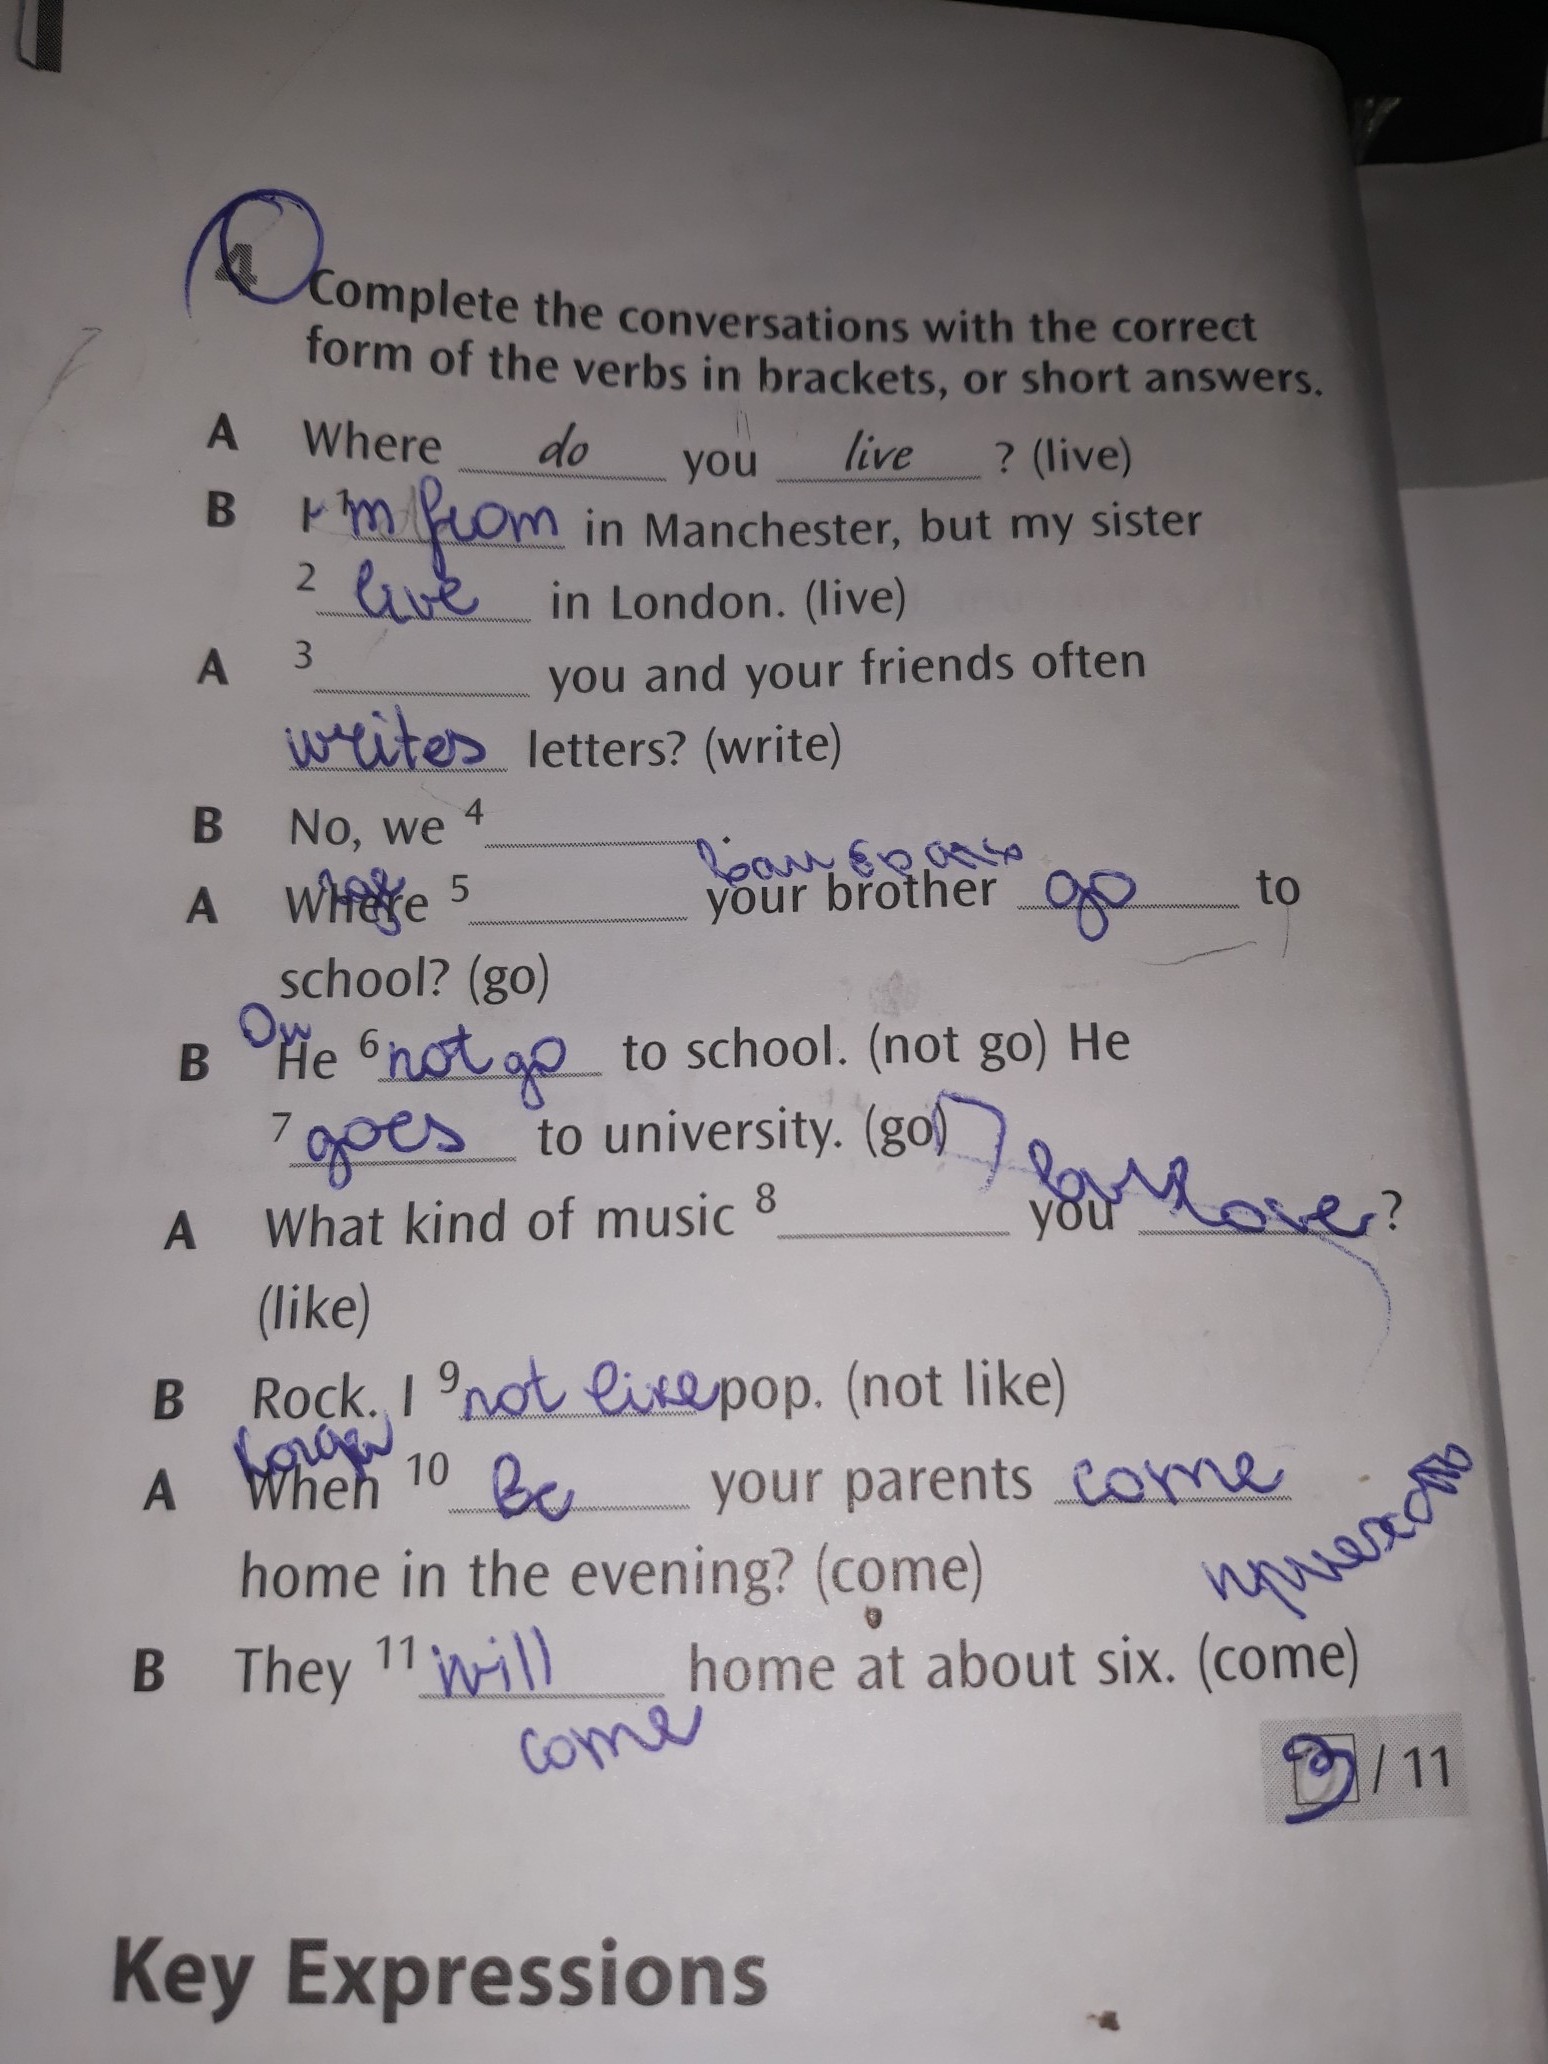 4 Complete the conversations with the correct
form of the verbs in brackets, or short answers.
A Where do you live ? (live)
B I 1'm from in Manchester, but my sister
2 live in London. (live)
A 3 you and your friends often
writes letters? (write)
B No, we 4 .
ваш брат
где
A Where 5 your brother go to
school? (go)
Он
B He 6 not go to school. (not go) He
7 goes to university. (go)
вам
A What kind of music 8 you love ?
(like)
B Rock. I 9 not like pop. (not like)
Когда
A When 10 Be your parents come
home in the evening? (come)
B They 11 will home at about six. (come)
come
3 / 11
Key Expressions